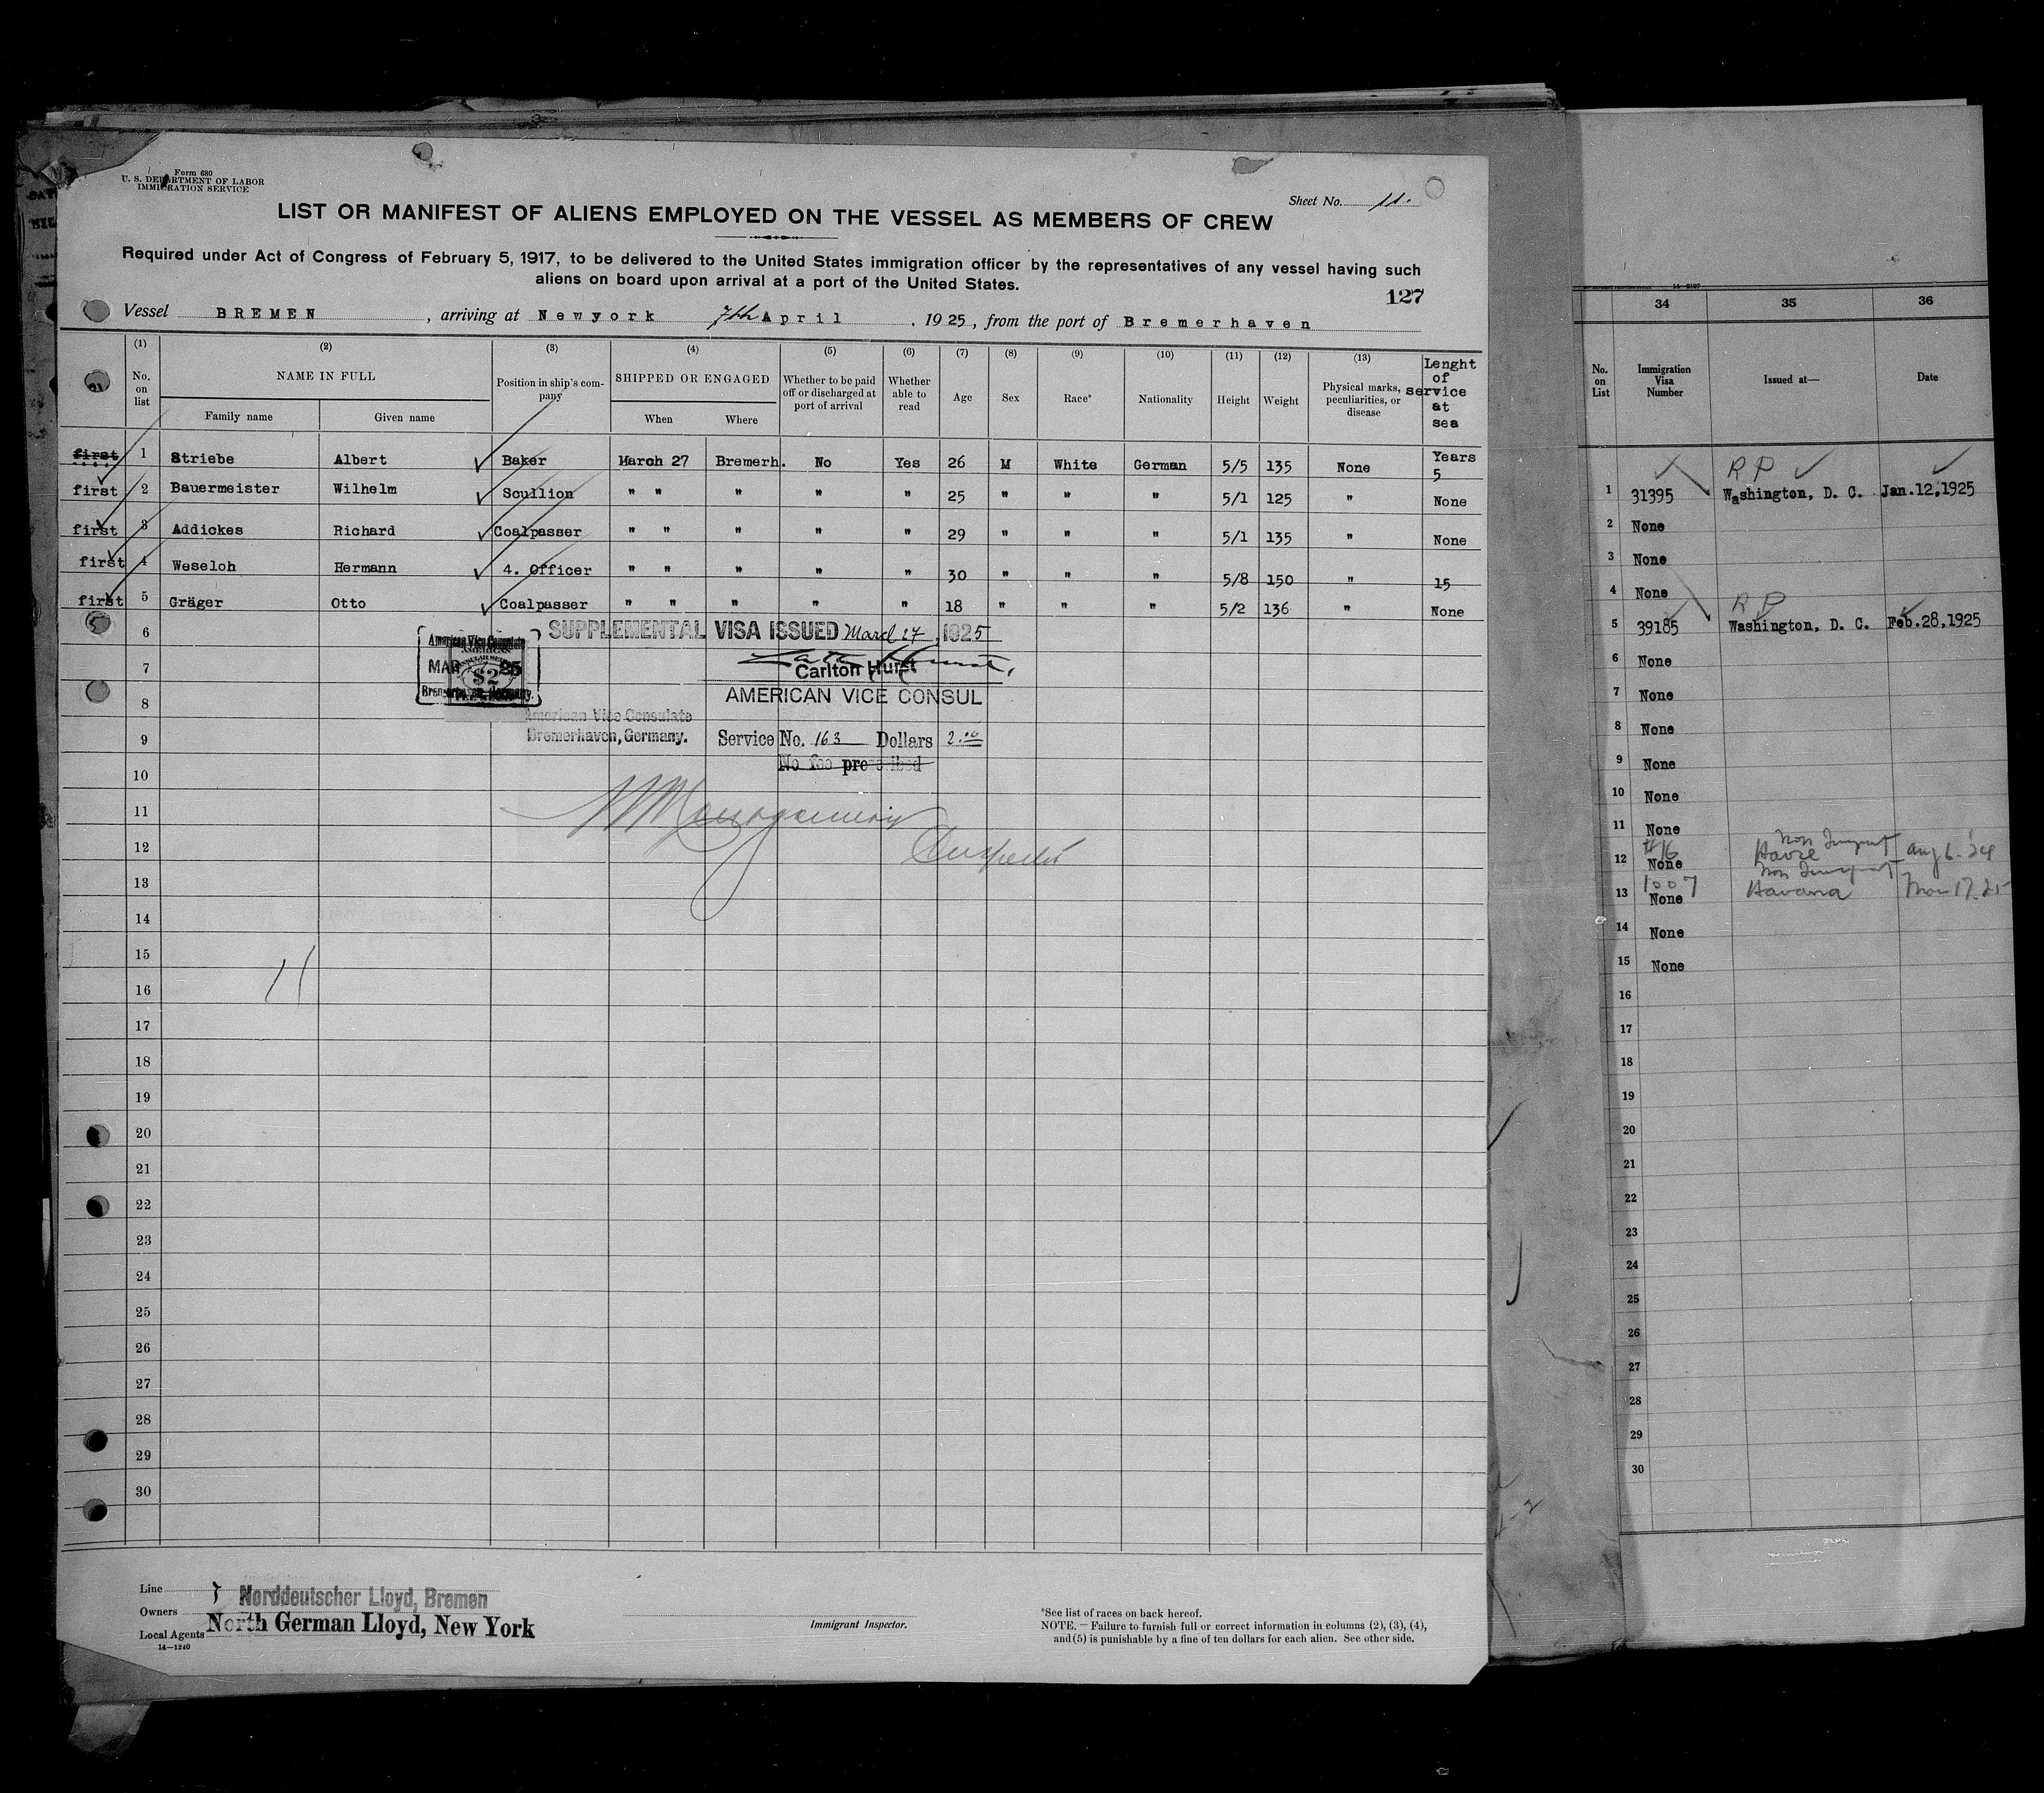 Form 680
U. S. DEPARTMENT OF LABOR
IMMIGRATION SERVICE
Sheet No. 11.
LIST OR MANIFEST OF ALIENS EMPLOYED ON THE VESSEL AS MEMBERS OF CREW
Required under Act of Congress of February 5, 1917, to be delivered to the United States immigration officer by the representatives of any vessel having such
aliens on board upon arrival at a port of the United States.
127
Vessel BREMEN, arriving at Newyork 7th April, 1925, from the port of Bremerhaven
(1) (2) (3) (4) (5) (6) (7) (8) (9) (10) (11) (12) (13)
No. on list NAME IN FULL Position in ship's company SHIPPED OR ENGAGED Whether to be paid off or discharged at port of arrival Whether able to read Age Sex Race* Nationality Height Weight Physical marks, peculiarities, or disease Lenght of service at sea
Family name Given name When Where
first 1 Striebe Albert Baker March 27 Bremerh. No Yes 26 M White German 5/5 135 None Years 5
first 2 Bauermeister Wilhelm Scullion " " " " " 25 " " " 5/1 125 " None
first 3 Addickes Richard Coalpasser " " " " " 29 " " " 5/1 135 " None
first 4 Weseloh Hermann 4. Officer " " " " " 30 " " " 5/8 150 " 15
first 5 Gräger Otto Coalpasser " " " " " 18 " " " 5/2 136 " None
5
6
SUPPLEMENTAL VISA ISSUED March 27, 1925
American Vice Consulate
MAR 25
$2
Bremerhaven, Germany.
7
Carlton Hurst
8
AMERICAN VICE CONSUL
American Vice Consulate
Bremerhaven, Germany.
9
Service No. 163 Dollars 2.00
No fee prescribed
10
11
12
Inspector
13
14
15
11
16
17
18
19
20
21
22
23
24
25
26
27
28
29
30
Line
Norddeutscher Lloyd, Bremen
Owners
Local Agents North German Lloyd, New York
14—1240
Immigrant Inspector.
*See list of races on back hereof.
NOTE.—Failure to furnish full or correct information in columns (2), (3), (4),
and (5) is punishable by a fine of ten dollars for each alien. See other side.
34 35 36
No. on List Immigration Visa Number Issued at— Date
R P
1 31395 Washington, D. C. Jan.12,1925
2 None
3 None
4 None
R P
5 39185 Washington, D. C. Feb.28,1925
6 None
7 None
8 None
9 None
10 None
11 None
#16 Havre Aug 6.'24
12 None
1007 Havana
13 None
14 None
15 None
16
17
18
19
20
21
22
23
24
25
26
27
28
29
30